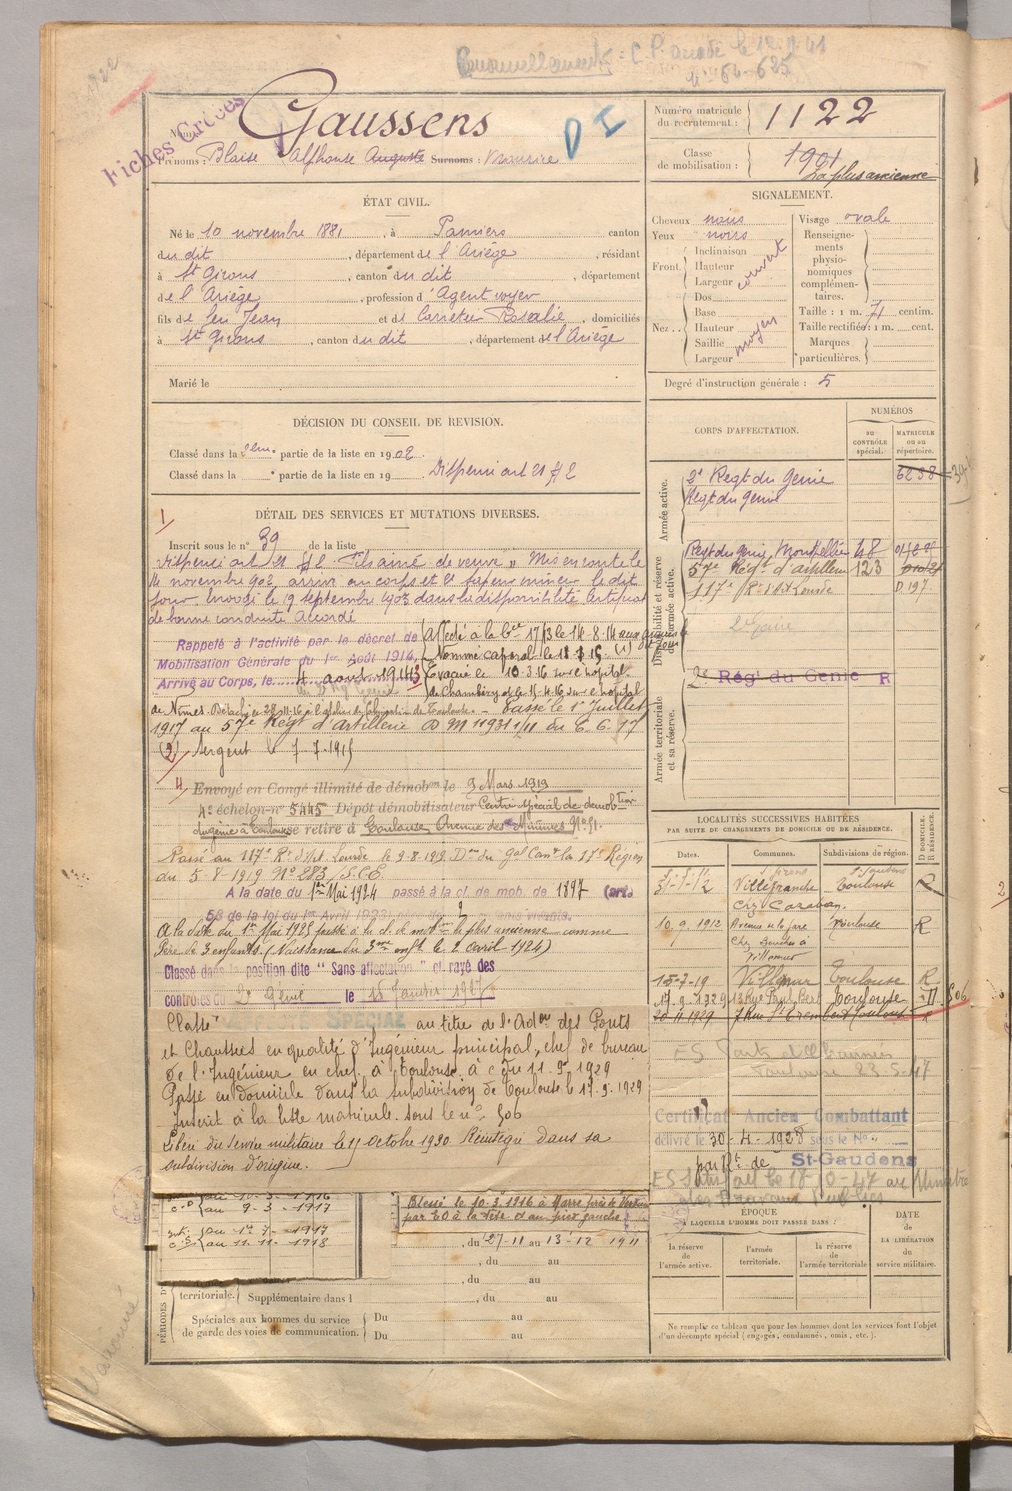 C. P. le 12.9.41
Fiches Croées
Nom : Gaussens
D I
Prénoms : Blaise Alphonse Auguste Surnoms : Maurice
Numéro matricule du recrutement : 1122
Classe de mobilisation : 1901
La plus ancienne
ÉTAT CIVIL.
Né le 10 novembre 1881, à Pamiers canton
du dit, département de l'Ariège, résidant
à St Girons, canton du dit, département
de l'Ariège, profession d'Agent voyer
fils de feu Jean et de Carretier Rosalie, domiciliés
à St Girons, canton du dit, département de l'Ariège
Marié le
SIGNALEMENT.
Cheveux noirs
Yeux noirs
Front. Inclinaison Hauteur Largeur couvert
Nez.. Dos Base Hauteur Saillie Largeur moyen
Visage ovale
Renseignements physionomiques complémentaires.
Taille : 1 m. 71 centim.
Taille rectifiée : 1 m. cent.
Marques particulières.
Degré d'instruction générale : 5
DÉCISION DU CONSEIL DE REVISION.
Classé dans la 2eme partie de la liste en 1902.
Classé dans la e partie de la liste en 19 Dispensé art 21 § 2
DÉTAIL DES SERVICES ET MUTATIONS DIVERSES.
1
Inscrit sous le n° 39 de la liste
Dispensé art 21 § 2 "Fils ainé de veuve" Mis en route le
14 novembre 902, arrivé au corps et 2e sapeur mineur le dit
jour. Envoyé le 19 septembre 1903 dans la disponibilité. Certificat
de bonne conduite Accordé
Rappelé à l'activité par le décret de
Mobilisation Générale du 1er Août 1914,
Arrivé au Corps, le 4 août 1914
Affecté à la Cie 17/3 le 14-8-14 aux armées le dit jour
Nommé caporal le 18 3 15 (1)
Evacué le 10.3.16 sur l'hopital
de Chambéry et le 15-4-16 sur l'hopital
de Nîmes. Passé le 1er Juillet
1917 au 57e Régt d'Artillerie D M 11931 1/11 du 6. 6. 17
(2) Sergent le 7-7-1915
4 Envoyé en Congé illimité de démobon le 9 Mars 1919
4e échelon n° 5445 Dépôt démobilisateur Centre spécial de démobtion
du génie à Toulouse se retire à Toulouse Avenue des Minimes N° 51.
Passé au 117e Rt d'Art Lourde le 9-8-1919. Don du Gal Cant la 17e Région
du 5-8-1919 N° 283 / S.C.E.
A la date du 1er Mai 1924 passé à la cl. de mob. de 1897 (art.
58 de la loi du 1er Avril 1923)
A la date du 1er Mai 1925 passé à la cl. de mobon la plus ancienne comme
Père de 3 enfants. (Naissance du 3me enft le 2 avril 1924)
Classé dans la position dite " Sans affectation " et rayé des
contrôles du 2e Génie le 15 Janvier 1927
Classé AFFECTÉ SPÉCIAL au titre de l'Adon des Ponts
et Chaussées en qualité d'Ingénieur principal, chef de bureau
de l'Ingénieur en chef, à Toulouse, à c du 11-9-1929
Passé en domicile dans la subdivision de Toulouse le 17-9-1929
Inscrit à la liste matricule sous le n° 506
Libéré du service militaire le 15 octobre 1930 Réintégré dans sa
subdivision d'origine.
CORPS D'AFFECTATION.
NUMÉROS
AU CONTRÔLE spécial.
MATRICULE ou au répertoire.
Armée active.
2e Régt du Génie 6258
Régt du Génie
Disponibilité et réserve de l'armée active.
Régt du Génie, Montpellier 48
57e Régt d'artillerie 123
117e Rt d'Art Lourde D 197
2e Génie
Armée territoriale et sa réserve.
2e Rég' du Génie R
LOCALITÉS SUCCESSIVES HABITÉES
PAR SUITE DE CHANGEMENTS DE DOMICILE OU DE RÉSIDENCE.
D DOMICILE. R RÉSIDENCE.
Dates. Communes. Subdivisions de région.
St Girons St Gaudens
Villefranche Toulouse R
10.9.1912 Avenue de la gare Toulouse R
Villemur
15-7-19 Villemur Toulouse R
17.9.1929 13 Rue Paul Bert Toulouse D 506
20 11 1929 7 Rue St Toulouse R
ES Ponts et Chaussées
Toulouse 23-5-47
Certificat Ancien Combattant
délivré le 30-4-1928 sous le No
par Rt de St-Gaudens
le 18-10-47 au Ministre
des Travaux publics
ÉPOQUE
A LAQUELLE L'HOMME DOIT PASSER DANS :
la réserve de l'armée active.
l'armée territoriale.
la réserve de l'armée territoriale
DATE DE LA LIBÉRATION du service militaire.
Ne remplir ce tableau que pour les hommes dont les services font l'objet
d'un décompte spécial (engagés, condamnés, omis, etc.).
du 10-3-1916
au 9-3-1917
Du 1er-7-1917
au 11-11-1918
Blessé le 10-3-1916 à Marre près de Verdun
par EO à la tête et au pied gauche.
, du 27-11 au 13-12 1911
, du au
, du au
territoriale. Supplémentaire dans l , du au
Spéciales aux hommes du service
de garde des voies de communication.
Du au
Du au
PÉRIODES D'